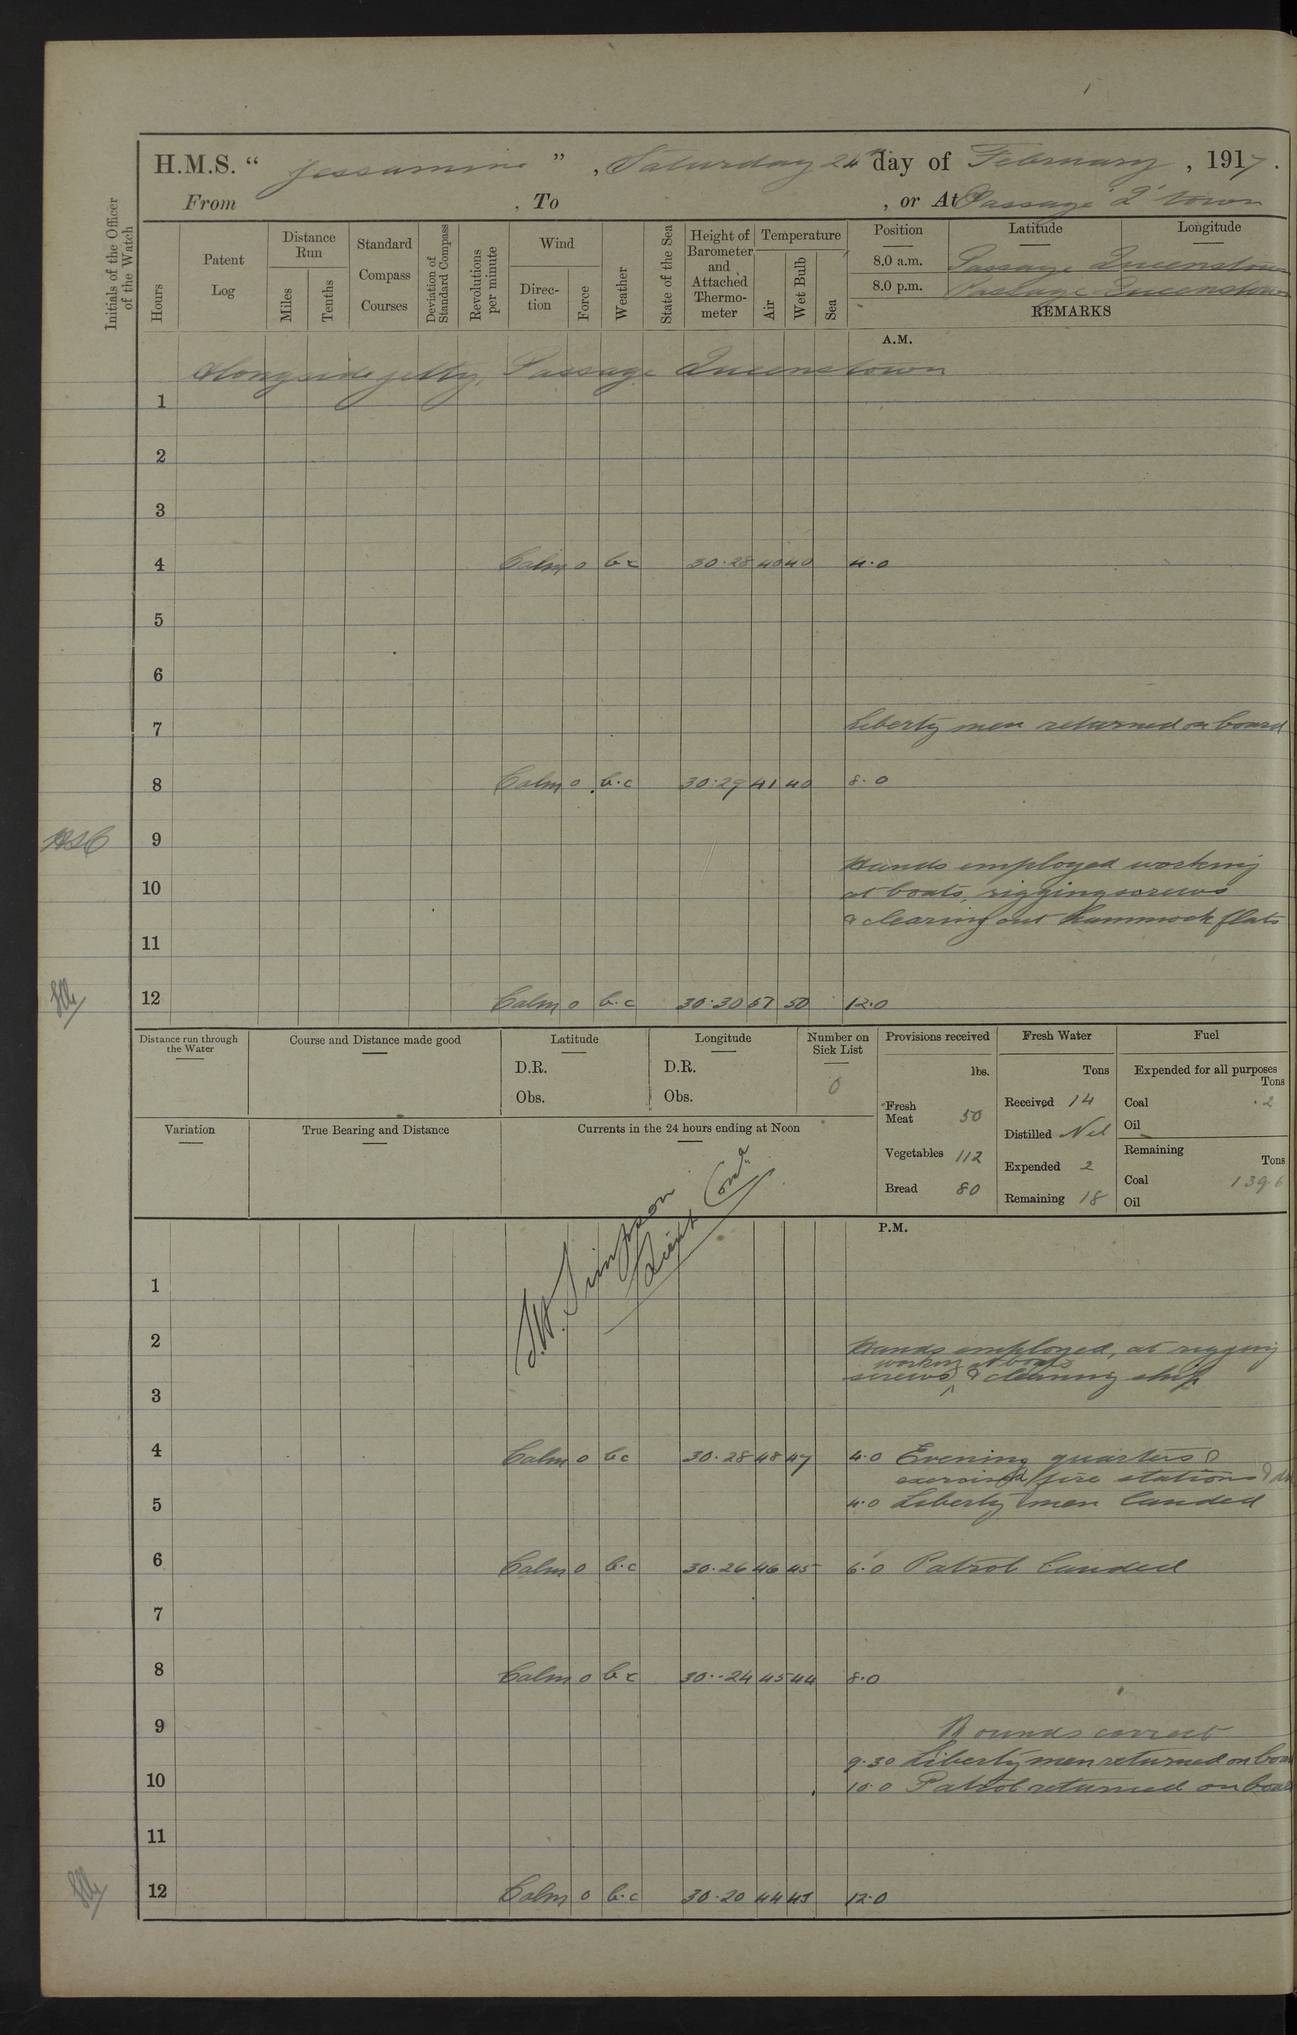 H.M.S. “ Jessamine ” , Saturday 24th day of February , 1917 .
From , To , or At Passage 'Q' town
Initials of the Officer of the Watch
Hours
Patent Log
Distance Run
Miles
Tenths
Standard Compass Courses
Deviation of Standard Compass
Revolutions per minute
Wind
Direc-tion
Force
Weather
State of the Sea
Height of Barometer and Attached Thermo-meter
Temperature
Air
Wet Bulb
Sea
Position Latitude Longitude
8.0 a.m. Passage Queenstown
8.0 p.m. Passage Queenstown
REMARKS
A.M.
Alongside jetty, Passage Queenstown
1
2
3
4 Calm 0 bc 30.28 40 40 4.0
5
6
7 Liberty men returned on board
8 Calm 0 b.c 30.29 41 40 8.0
9
Hands employed working
10 at boats, rigging screws
& clearing out hammock flats
11
12 Calm 0 b.c 30.30 57 50 12.0
Distance run through the Water
Course and Distance made good
Latitude
D.R.
Obs.
Longitude
D.R.
Obs.
Number on Sick List
0
Provisions received
lbs.
Fresh Meat 50
Vegetables 112
Bread 80
Fresh Water
Tons
Received 14
Distilled Nil
Expended 2
Remaining 18
Fuel
Expended for all purposes
Tons
Coal .2
Oil
Remaining
Tons
Coal 139.6
Oil
Variation
True Bearing and Distance
Currents in the 24 hours ending at Noon
S.A. Simpson
Lieut Comdr
P.M.
1
2 Hands employed, at rigging
working at boats
screws, & cleaning ship
3
4 Calm 0 bc 30.28 48 47 4.0 Evening quarters &
exercised fire stations &
5 4.0 Liberty men landed
6 Calm 0 b.c 30.26 46 45 6.0 Patrol landed
7
8 Calm 0 bc 30.24 45 44 8.0
9 Rounds correct
9.30 Liberty men returned on boa
10 10.0 Patrol returned on boa
11
12 Calm 0 b.c 30.20 44 43 12.0